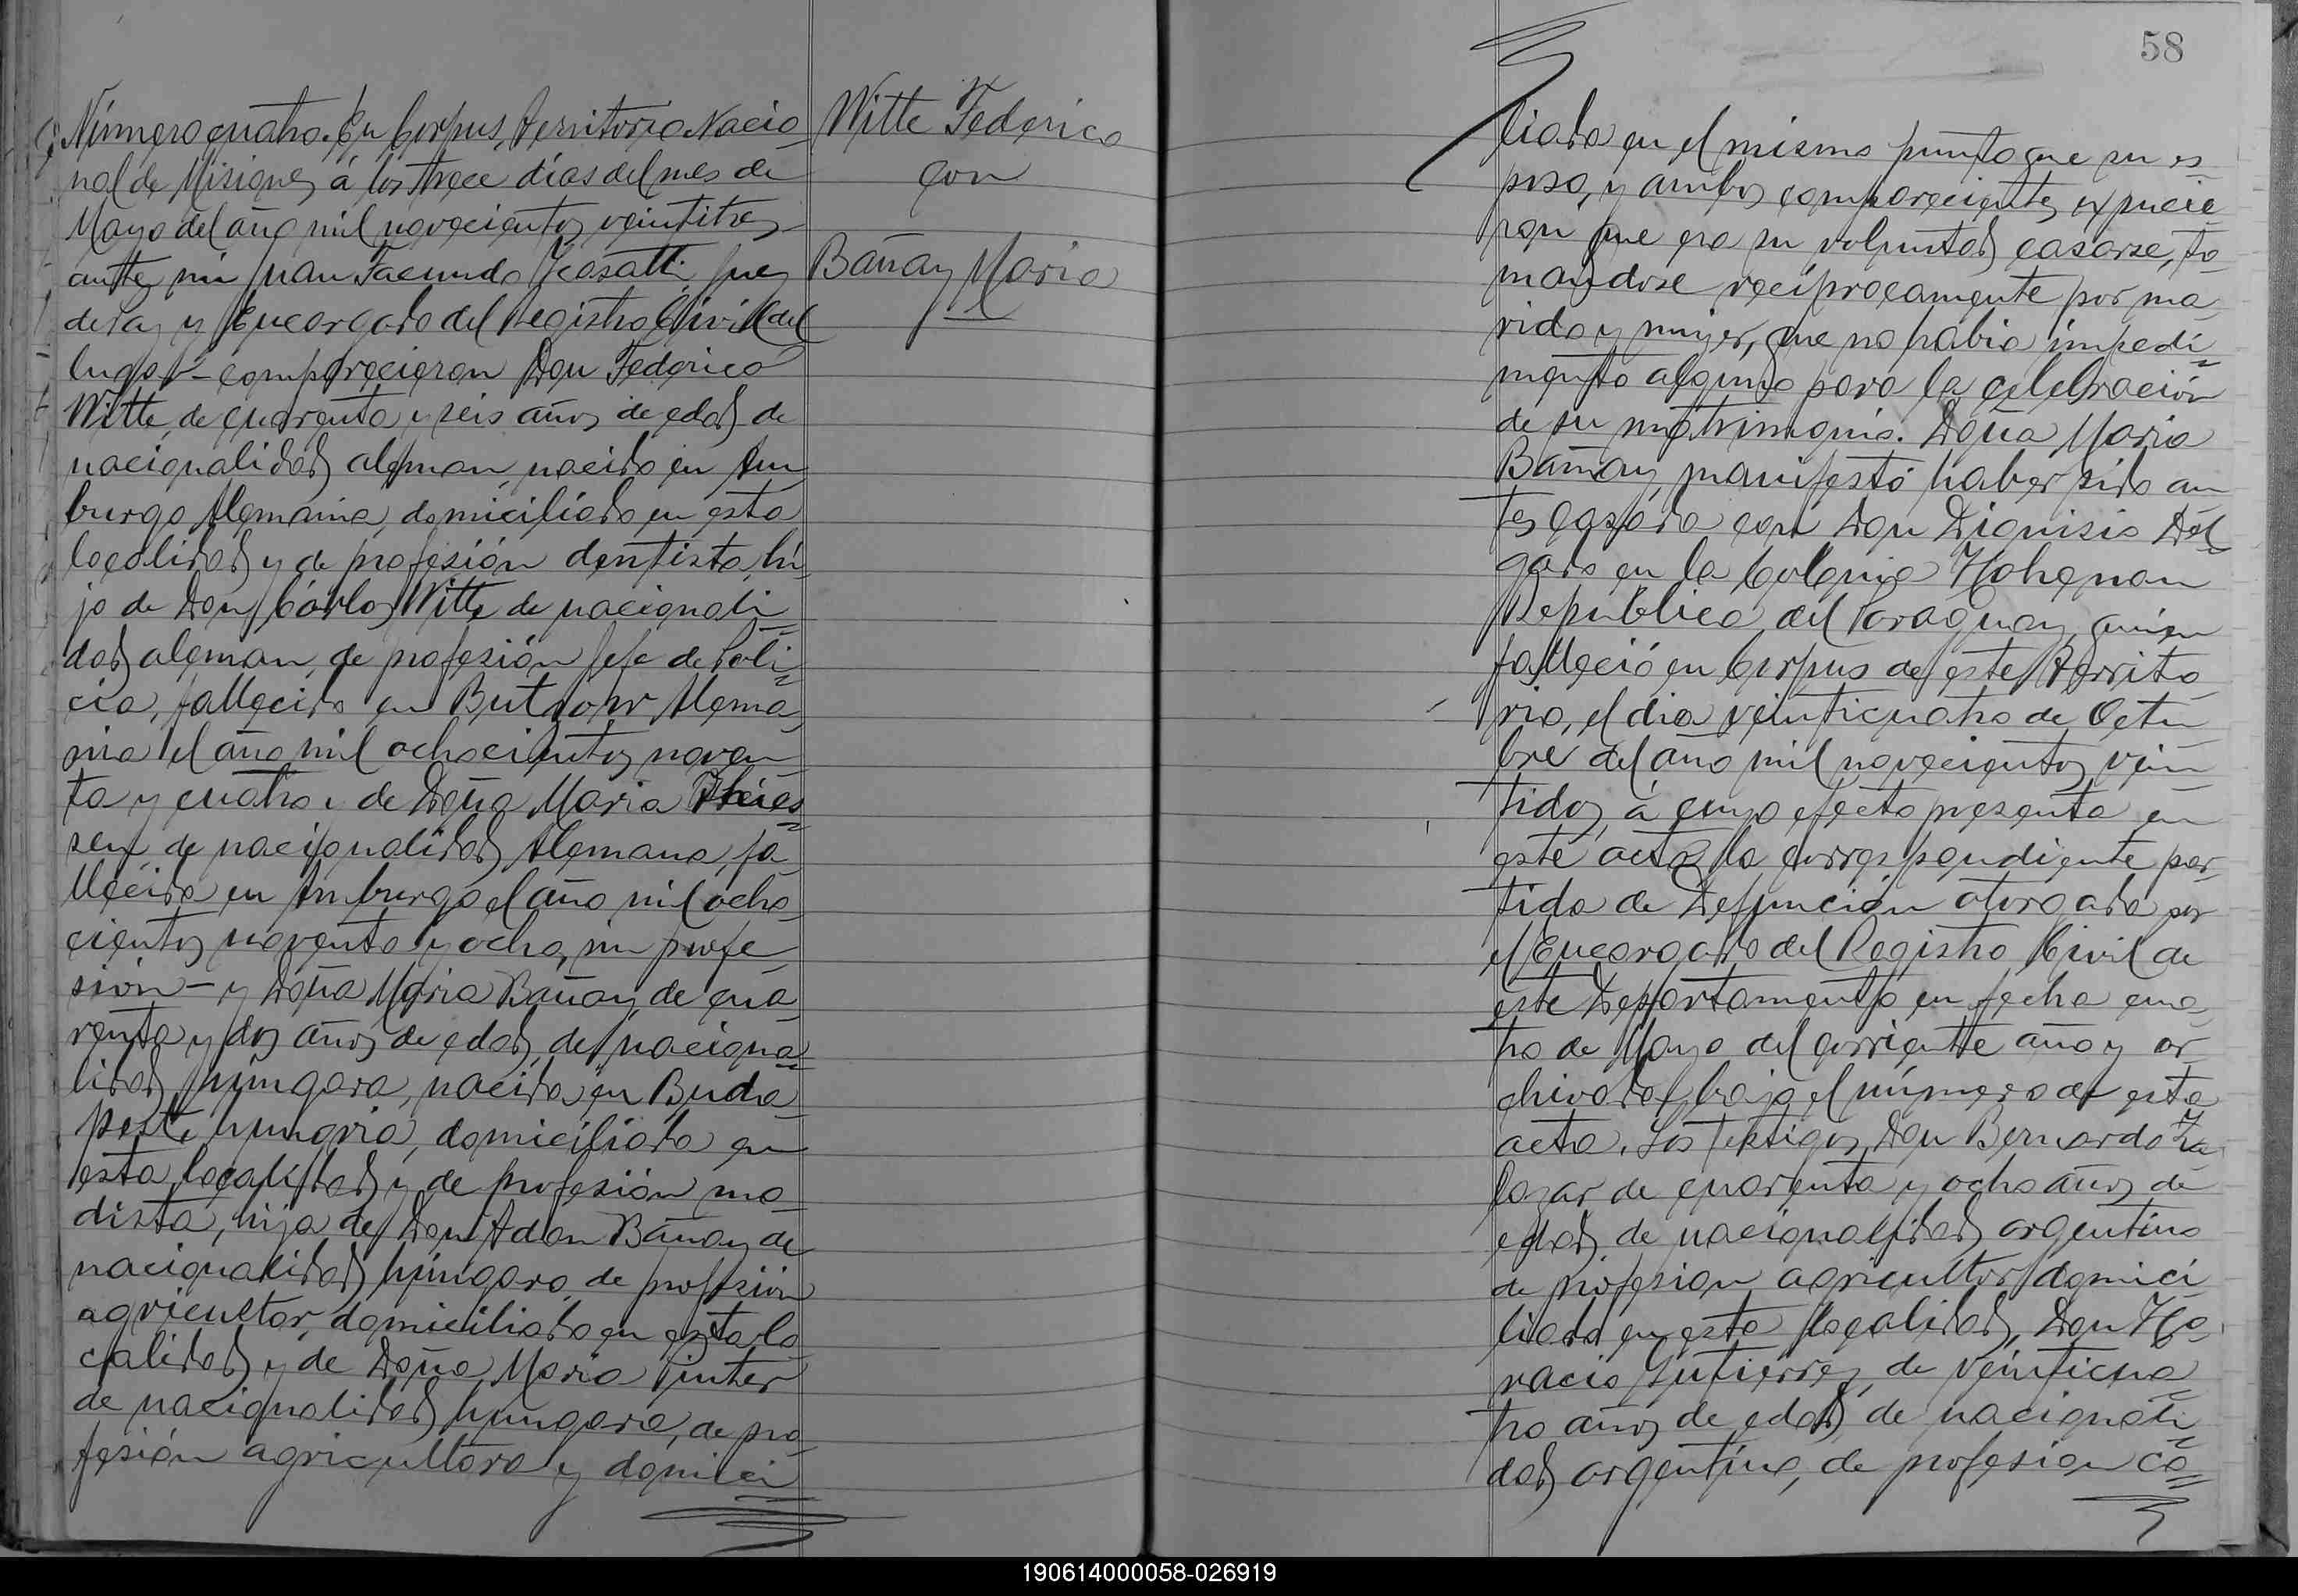 Número cuatro. En Corpus, Territorio Nacio
nal de Misiones, á los trece días del mes de
Mayo del año mil novecientos veintitres
ante mi Juan Facundo Juez
de Paz y Encargado del Registro Civil del
lugar - comparecieron Don Federico
Witte, de cuarenta y seis años de edad, de
nacionalidad aleman, nacido en Am
burgo Alemania, domiciliado en esta
localidad y de profesión dentista, hi
jo de Don Cárlos Witte de nacionali
dad aleman, de profesión Jefe de Poli
cia, fallecido en Butzow Alema
nia el año mil ochocientos noven
ta y cuatro y de Doña Maria Thies
sen, de nacionalidad Alemana, fa
llecida en Amburgo el año mil ocho
cientos noventa y ocho, sin profe
sión - y Doña Maria Bañay, de cua
renta y dos años de edad, de naciona
lidad húngara, nacida en Buda
peste hungria, domiciliada en
esta localidad y de profesión mo
dista, hija de Don Adan Bañay de
nacionalidad húngaro, de profesión
agricultor, domiciliado en esta lo
calidad y de Doña Maria Pinter
de nacionalidad hungara, de pro
fesión agricultora y domici
Witte Federico
con
Bañay Maria
58
liada en el mismo punto que su es
poso, y ambos comparecientes expucie
ron que era su voluntad casarse, to
mandose recíprocamente por ma
rido y mujer, que no habia impedi
mento alguno para la celebración
de su matrimonio. Doña Maria
Bañay, manifestó haber sido an
tes casada con Don Dionisio Del
gado en la Colonia Hohenau
República del Paraguay, quien
falleció en Corpus de este Territo
rio, el dia veinticuatro de Octu
bre del año mil novecientos vein
tidos, á cuyo efecto presenta en
este acto la correspondiente par
tida de Defunción otorgada por
el Encargado del Registro Civil de
este Departamento en fecha cua
tro de Mayo del corriente año y ar
chivada bajo el número de esta
acta. Los testigos Don Bernardo Za
lazar de cuarenta y ocho años de
edad, de nacionalidad argentino
de profesion agricultor, domici
liado en esta localidad, Don Ho
racio Gutierrez, de veinticua
tro años de edad, de nacionali
dad argentino, de profesion co
190614000058-026919